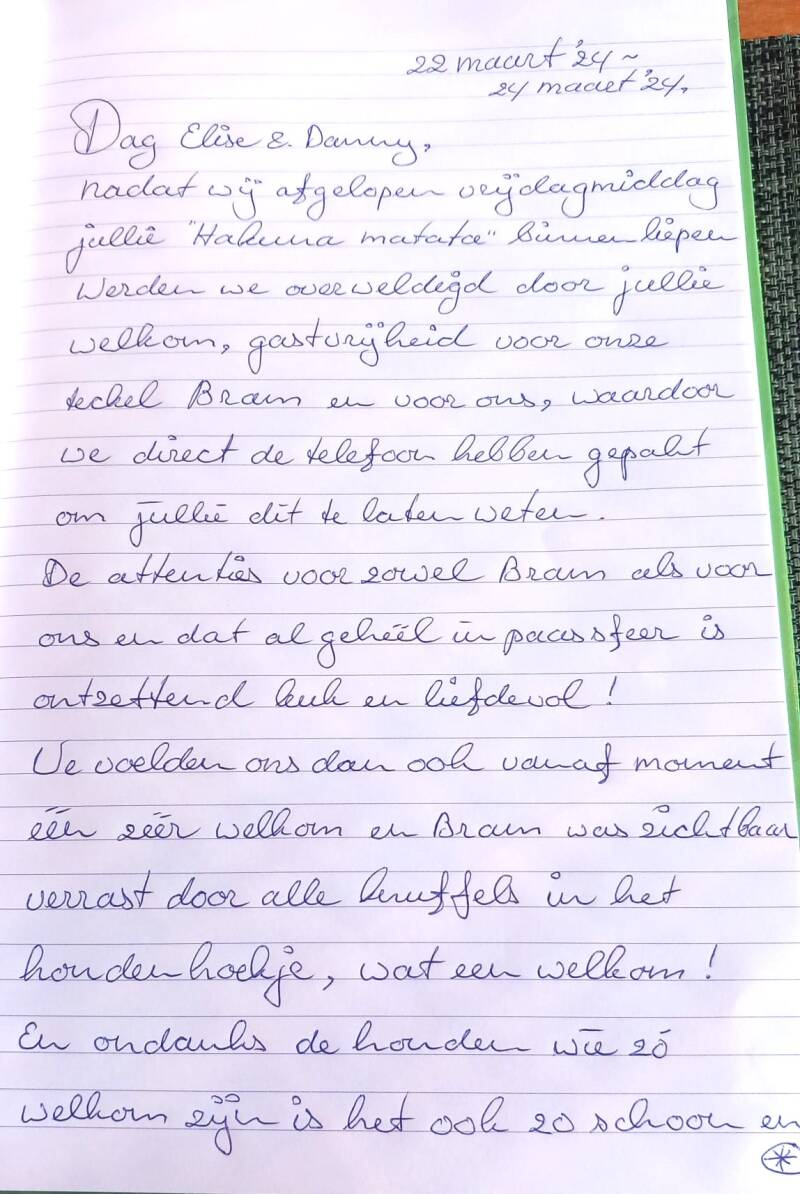 22 maart '24 ~
24 maart '24.
Dag Elise & Danny,
nadat wij afgelopen vrijdagmiddag
jullie "Hakuna matata" binnen liepen
werden we overweldigd door jullie
welkom, gastvrijheid voor onze
teckel Bram en voor ons, waardoor
we direct de telefoon hebben gepakt
om jullie dit te laten weten.
De attenties voor zowel Bram als voor
ons en dat al geheel in paassfeer is
ontzettend leuk en liefdevol!
We voelden ons dan ook vanaf moment
één zéér welkom en Bram was zichtbaar
verrast door alle knuffels in het
hondenhoekje, wat een welkom!
En ondanks de honden wie zó
welkom zijn is het ook zo schoon en